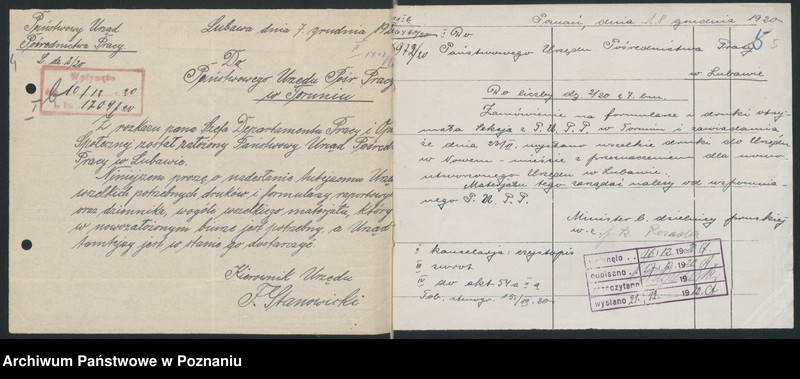 Państwowy Urząd
Pośrednictwa Pracy
L. dz. 2/20
Lubawa dnia 7 grudnia
Do
Państwowego Urzędu Pośr Pracy
w Toruniu
Wpłynęło
10/12 20
1709/20
Z rozkazu pana Szefa Departamentu Pracy i Op
Społecznej został założony Państwowy Urząd Pośred
Pracy w Lubawie.
Niniejszem proszę o nadesłanie tutejszemu Urzę
wszelkich potrzebnych druków i formularzy raportowych
oraz dziennika, wogóle wszelkiego materjału, który
w nowozałożonym biurze jest potrzebny, a Urząd
tamtejszy jest w stanie go dostarczyć.
Kierownik Urzędu
F. Stanowicki
Poznań, dnia 18 grudnia 1920
Do
922/20
Państwowego Urzędu Pośrednictwa Pracy
5
w Lubawie
Do liczby dz 2/20 z 7. bm.
Zamówienie na formularze i druki otrzy-
mała Sekcja z P. U. P. P. w Toruniu i zawiadamia
że dnia wysłano wszelkie druki do Urzędu
w Nowem-mieście z przeznaczeniem dla nowo-
utworzonego Urzędu w Lubawie.
Materjału tego zażądać należy od wspomnia-
nego P. U. P. P.
Minister b. dzielnicy pruskiej
w. z.
I kancelarja: czystopis
II zwrot
IV do akt 54 a
16/12 1920
wysłano 21. 12. 19
Archiwum Państwowe w Poznaniu